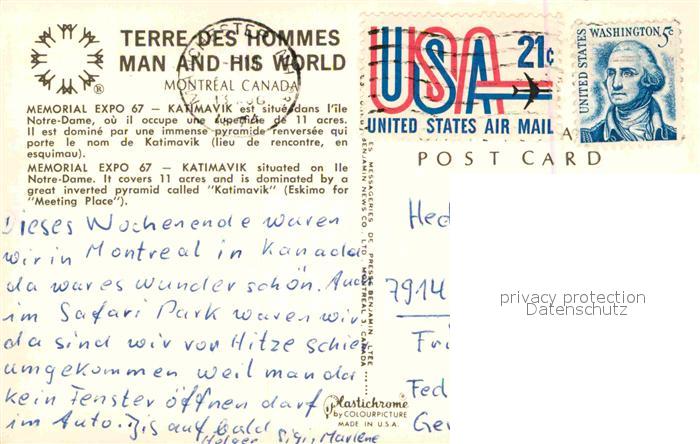 TERRE DES HOMMES
MAN AND HIS WORLD
MONTRÉAL CANADA
®
MEMORIAL EXPO 67 — KATIMAVIK est situé dans l'île
Notre-Dame, où il occupe une superficie de 11 acres.
Il est dominé par une immense pyramide renversée qui
porte le nom de Katimavik (lieu de rencontre, en
esquimau).
MEMORIAL EXPO 67 — KATIMAVIK situated on Ile
Notre-Dame. It covers 11 acres and is dominated by a
great inverted pyramid called "Katimavik" (Eskimo for
"Meeting Place").
Dieses Wochenende waren
wir in Montreal in Kanada
da war es wunderschön. Auch
im Safari Park waren wir
da sind wir vor Hitze schier
umgekommen weil man da
kein Fenster öffnen darf
im Auto. Bis auf bald
Holger Sigi, Marlene
Plastichrome®
by COLOURPICTURE
MADE IN U.S.A.
ES MESSAGERIES DE PRESSE BENJAMIN LTÉE
BENJAMIN NEWS CO. LTD. MONTREAL 3, CANADA
USA 21c
UNITED STATES AIR MAIL
UNITED STATES
WASHINGTON 5c
POST CARD
Hed
7914
Fri
Fed
Ger
privacy protection
Datenschutz